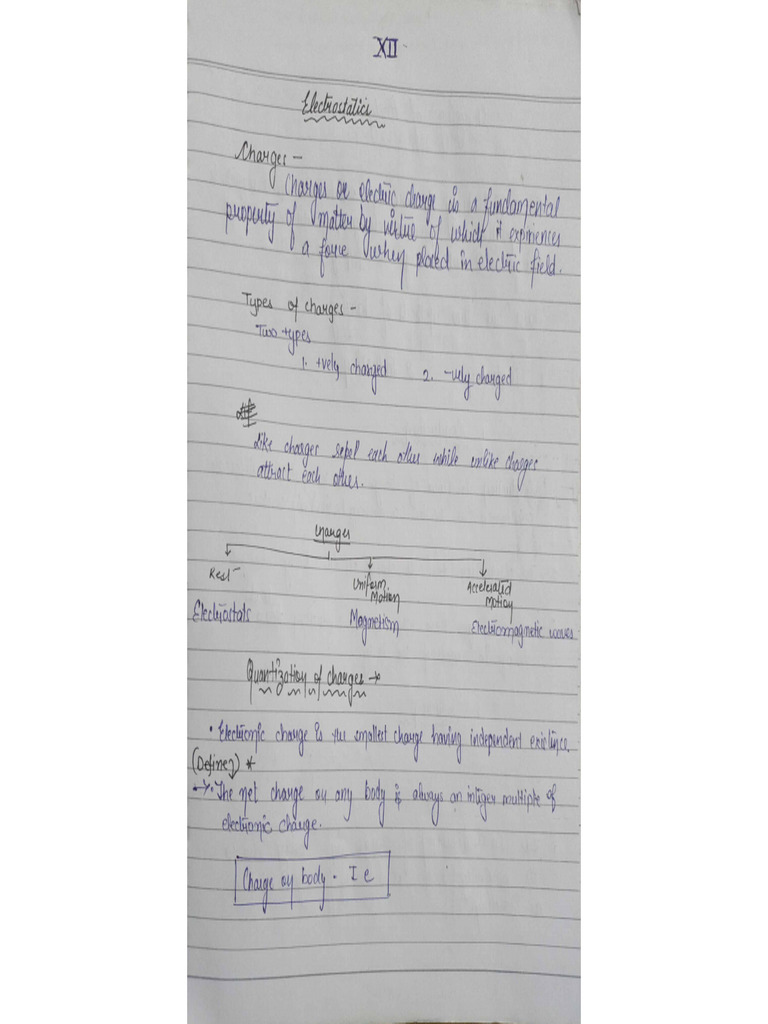 XII
Electrostatics
Charges -
Charges or electric charge is a fundamental
property of matter by virtue of which it experiences
a force when placed in electric field.
Types of charges -
Two types
1. +vely charged 2. -vely charged
Like charges repel each other while unlike charges
attract each other.
Charges
Rest Uniform Motion Accelerated Motion
Electrostats Magnetism Electromagnetic waves
Quantization of charges →
• Electronic charge is the smallest charge having independent existence.
(Define) *
→ • The net charge on any body is always an integer multiple of
electronic charge.
Charge on body = I e